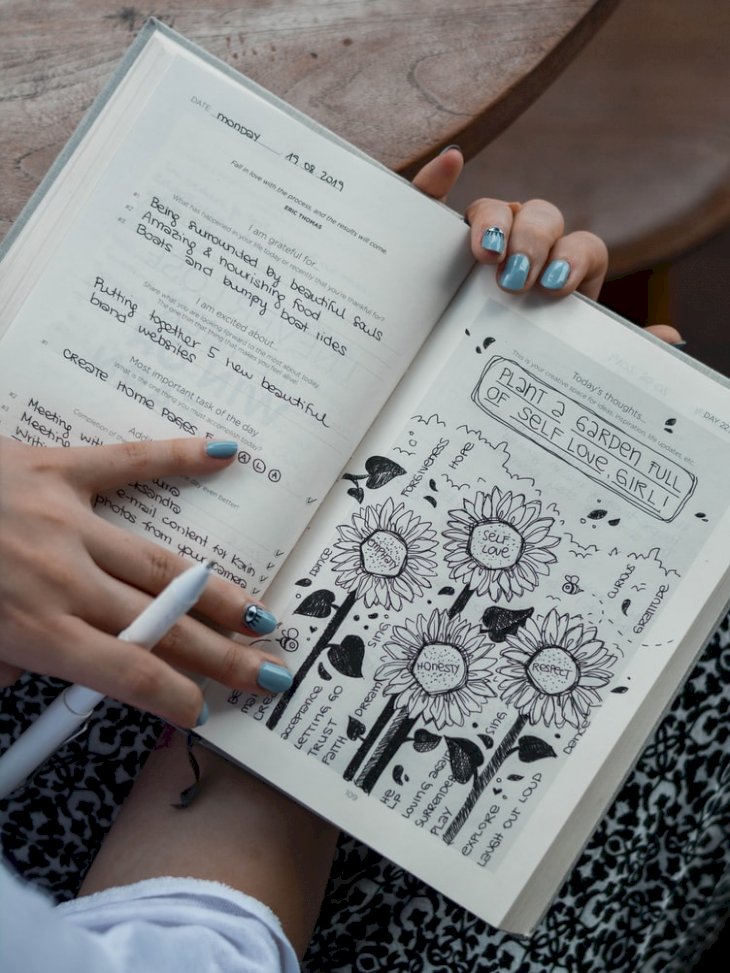 DATE monday 19.08.2019
Fall in love with the process, and the results will come.
ERIC THOMAS
I am grateful for...
What has happened in your life today or recently that you're thankful for?
#1 Being surrounded by beautiful souls
#2 Amazing & nourishing food
Boats and bumpy boat rides
I am excited about...
Share what you are looking forward to the most about today.
The one thing that makes you feel alive!
Putting together 5 new beautiful
brand websites
Most important task of the day
What is the one thing you must accomplish today?
#1 create home pages
A L A
Completion of
day even better!
#2 Meeting with
#3 Meeting
e-mail content for Karin
photos from your camera
DAY 22
Today's thoughts...
This is your creative space for ideas, inspiration, life updates, etc.
PLANT A GARDEN FULL
OF SELF LOVE, GIRL!
FORGIVENESS
HOPE
SELF
LOVE
CURIOUS
GRATITUDE
DANCE
SING
HONESTY
RESPECT
ACCEPTANCE
LETTING GO
TRUST
FAITH
DREAM
SING
HELP
LOVING AGAIN
SURRENDER
PLAY
EXPLORE
LAUGH OUT LOUD
109